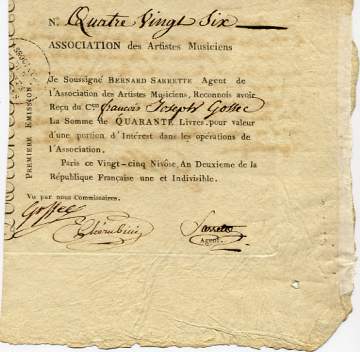 N. Quatre Vingt Six
ASSOCIATION des Artistes Musiciens
Je Soussigné BERNARD SARRETTE Agent de
l'Association des Artistes Musiciens, Reconnois avoir
Reçu du C.en françois Joseph Gossec
La Somme de QUARANTE Livres, pour valeur
d'une portion d'Intérêt dans les opérations de
l'Association.
Paris ce Vingt-cinq Nivôse, An Deuxieme de la
République Française une et Indivisible.
Vu par nous Commissaires.
Gossec
Cherubini
Sarrette
Agent.
PREMIERE EMISSION